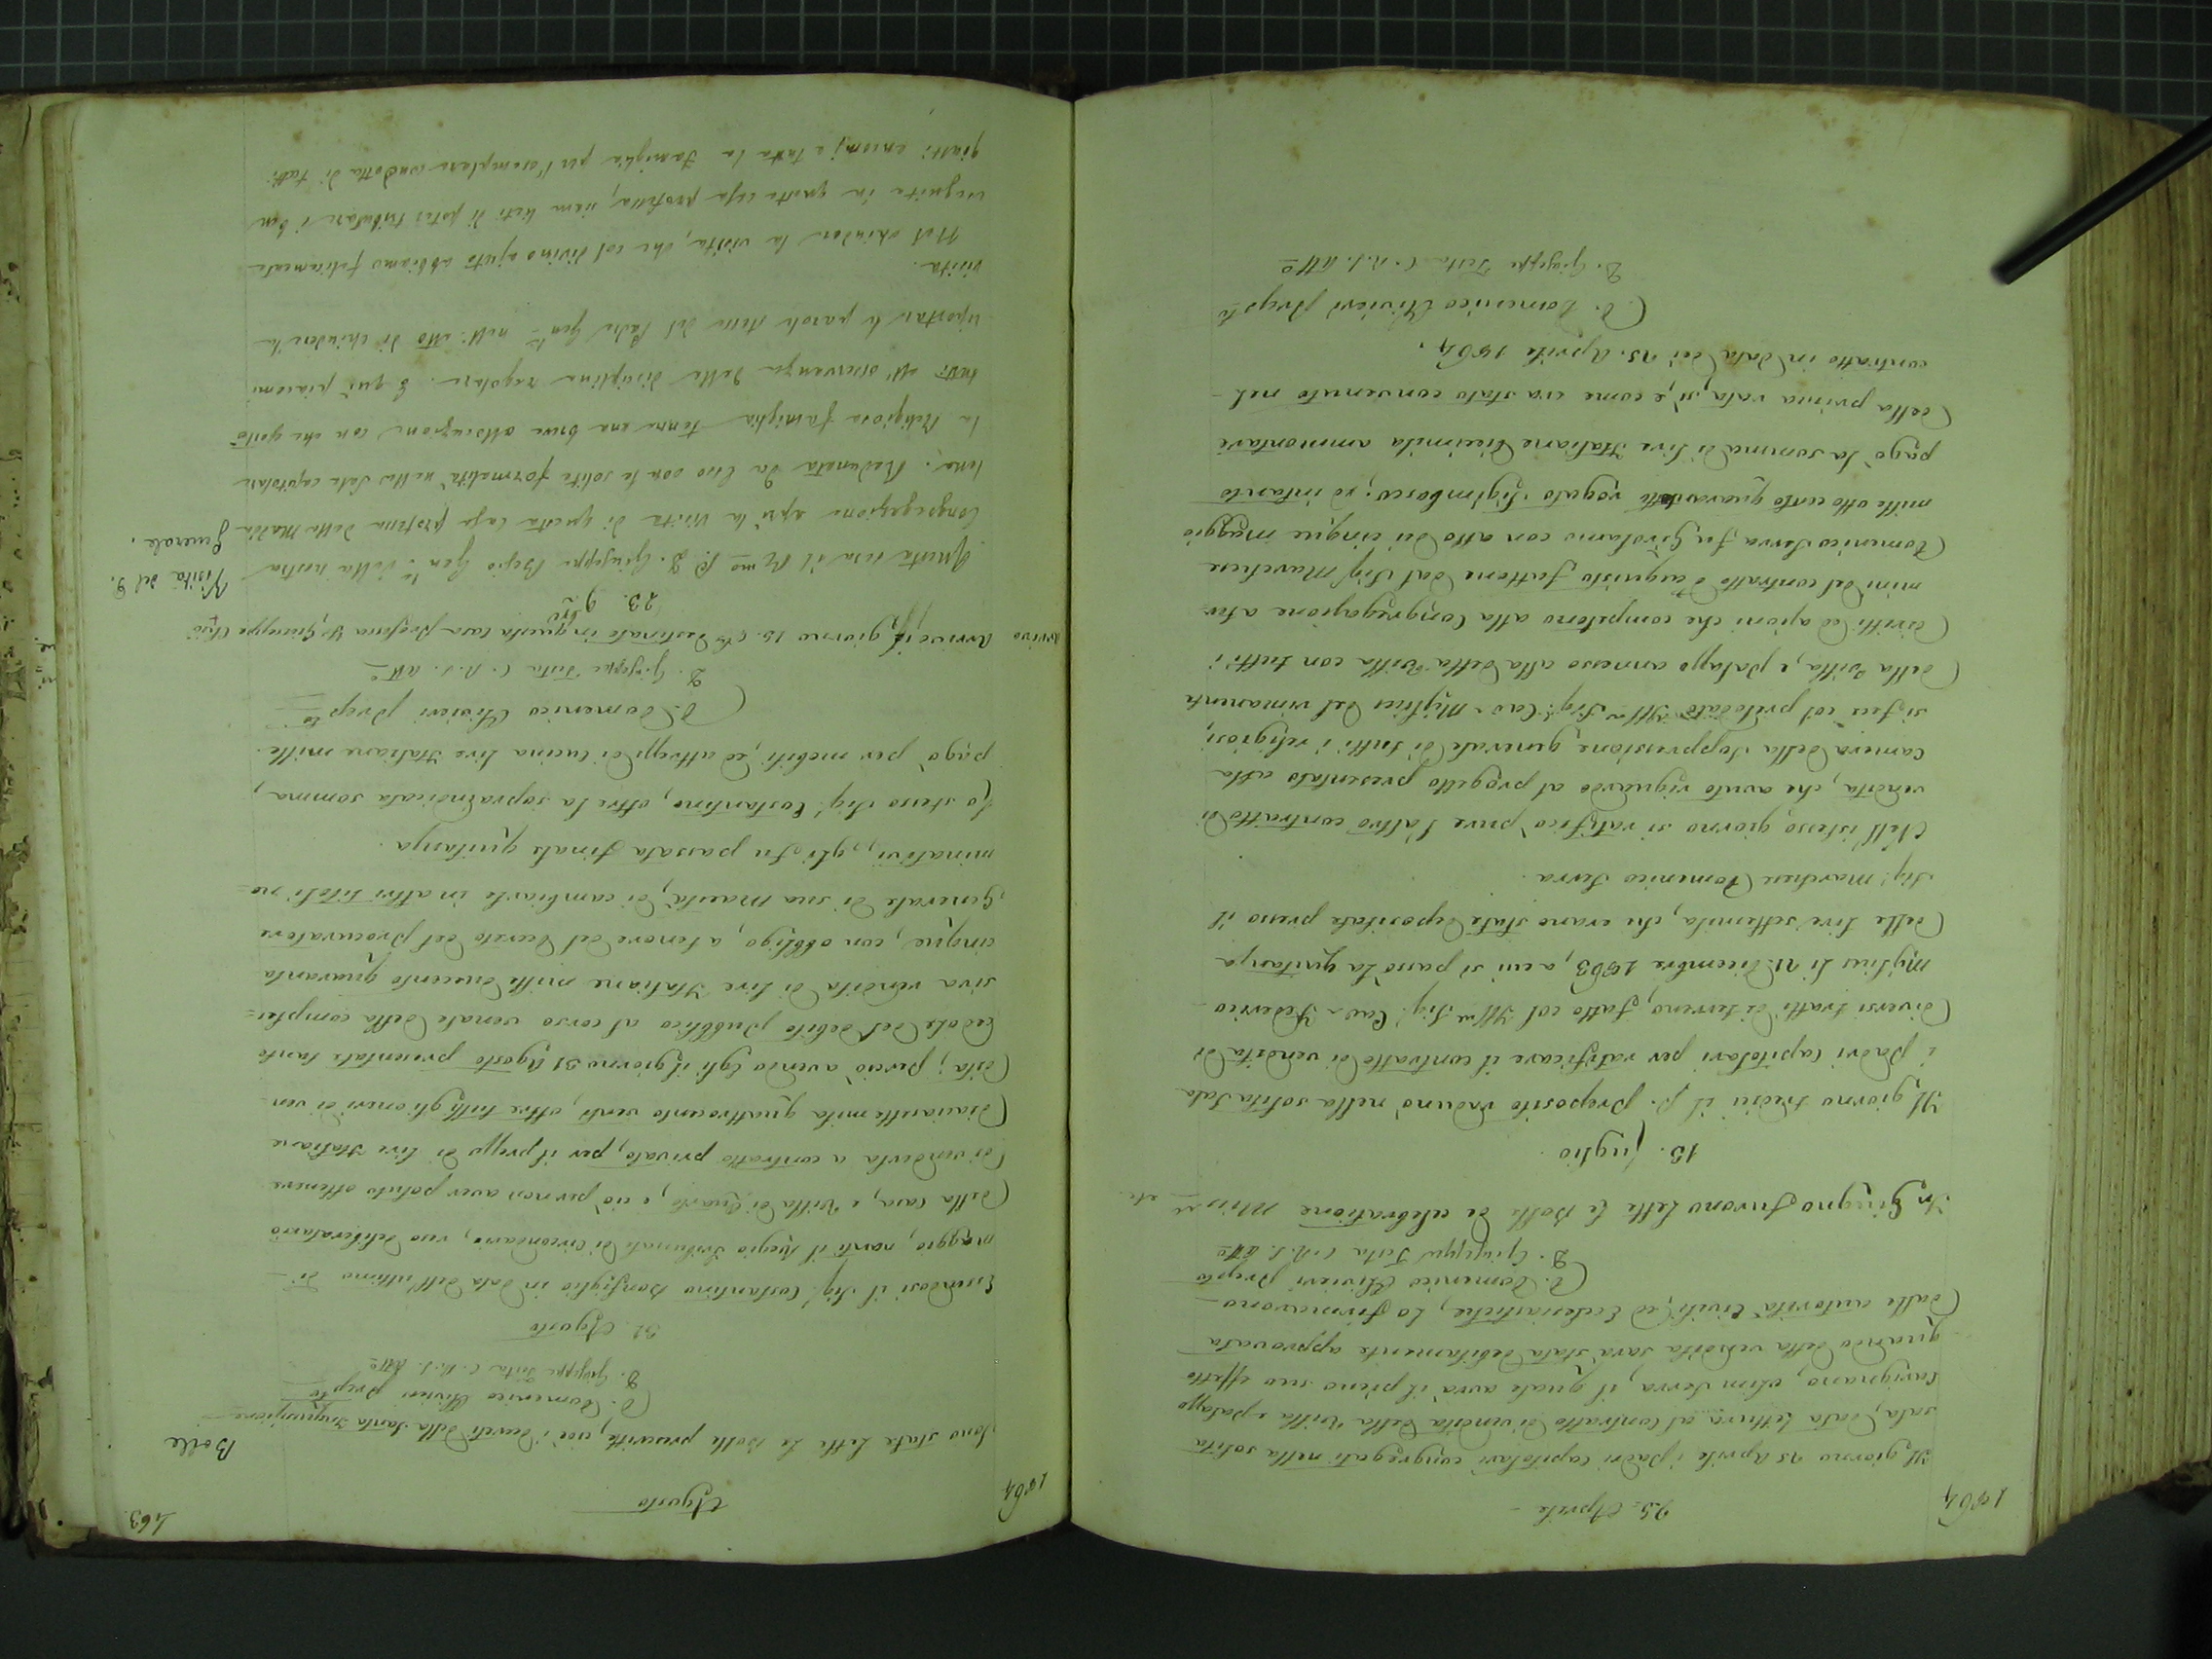 1864
25. Aprile
Il giorno 25 Aprile i padri capitolari congregati nella solita
sala, data lettura al contratto di vendita della Villa e palazzo
Savignano, olim Serra, il quale avrà il pieno suo effetto
quando detta vendita sarà stata debitamente approvata
dalle autorità Civili, ed Ecclesiastiche, lo firmarono
D. Domenico Olivieri Prepto
D. Giuseppe Testa C.R.S. Atto
In Giugno furono lette le Bolle de celebratione Miss
13. Luglio
Il giorno tredici il P. Preposito radunò nella solita sala
i padri capitolari per ratificare il contratto di vendita di
diversi tratti di terreno, fatto col Sig. Cav. Federico
Mylius li 21. Dicembre 1863, a cui si passò la quitanza
delle lire settemila, che erano state depositate presso il
Sig. Marchese Domenico Serra.
Nell'istesso giorno si ratificò pure l'altro contratto di
vendita, che avuto riguardo al progetto presentato alla
camera della soppressione generale di tutti i religiosi,
si fece col prelodato Sig. Cav. Mylius del rimanente
della Villa, e palazzo annesso alla detta Villa con tutti i
diritti ed azioni che competono alla Congregazione a ter
mini del contratto d'acquisto fattone dal Sig. Marchese
Domenico Serra fu Girolamo con atto dei cinque maggio
mille otto cento quarantotto rogato Sigimbosco; ed intanto
pagò la somma di lire Italiane diecimila ammontare
della prima rata, sì e come era stato convenuto nel
contratto in data dei 25. Aprile 1864.
D. Domenico Olivieri Prepto
D. Giuseppe Testa C.R.S. Atto
1864
Agosto
163
Sono state lette le Bolle prescritte, cioè i Decreti della Santa Inquisizione
Bolle
D. Domenico Olivieri Prepto
D. Giuseppe Testa C.R.S. Atto
31. Agosto
Essendosi il Sig. Costantino Bonfiglio in data dell'ultimo di
maggio, nanti il Regio Tribunale di Circondario, reso deliberatario
della Casa, e Villa di Quarto, e ciò per non aver potuto ottenere
di venderla a contratto privato, per il prezzo di lire Italiane
Diciasette mila quattrocento venti, oltre tutti gli oneri di ven
dita; perciò avendo Egli il giorno 31 Agosto presentate tante
Cedole del debito pubblico al corso venale della comples-
siva rendita di lire Italiane mille duecento quaranta
cinque, con obbligo, a tenore del decreto del Procuratore
Generale di sua Maestà, di cambiarle in altri titoli no-
minativi, gli fu passata finale quitanza.
Lo stesso Sig. Costantino, oltre la sopraindicata somma,
pagò per mobili, ed attrezzi di cucina lire Italiane mille
D. Domenico Olivieri Prepto
D. Giuseppe Testa C.R.S. Atto
Arrivo
Arrivò il giorno 15. 8bre destinato in questa casa professa Giuseppe
23. 9bre
Visita del P.
Generale.
Questa sera il Rmo P. D. Giuseppe Besio Genle della nostra
Congregazione aprì la visita di questa casa professa della Madda
lena. Radunata da Esso con le solite formalità nella sala capitolare
la Religiosa famiglia tenne una breve allocuzione con che esortò
tutti all'osservanza della disciplina regolare. E qui piacemi
riportare le parole stesse del Padre Genle nell'atto di chiudere la
visita.
Nel chiudere la visita, che col divino ajuto abbiamo felicemente
eseguita in questa casa professa, siam lieti di poter tributare i ben
giusti encomj a tutta la famiglia per l'esemplare condotta di tutti